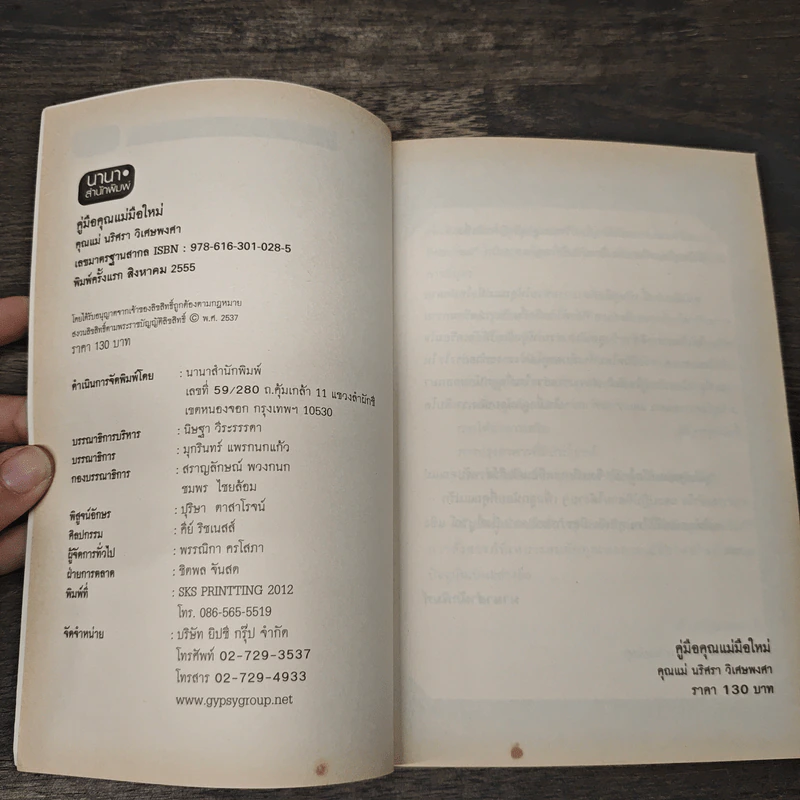 นานา
สำนักพิมพ์
คู่มือคุณแม่มือใหม่
คุณแม่ นริศรา วิเศษพงศา
เลขมาตรฐานสากล ISBN : 978-616-301-028-5
พิมพ์ครั้งแรก สิงหาคม 2555
โดยได้รับอนุญาตจากเจ้าของลิขสิทธิ์ถูกต้องตามกฎหมาย
สงวนลิขสิทธิ์ตามพระราชบัญญัติลิขสิทธิ์ © พ.ศ. 2537
ราคา 130 บาท
ดำเนินการจัดพิมพ์โดย : นานาสำนักพิมพ์
เลขที่ 59/280 ถ.คุ้มเกล้า 11 แขวงลำผักชี
เขตหนองจอก กรุงเทพฯ 10530
บรรณาธิการบริหาร : นิษฐา วีระรรรดา
บรรณาธิการ : มุกรินทร์ แพรกนกแก้ว
กองบรรณาธิการ : สราญลักษณ์ พวงกนก
ชมพร ไชยล้อม
พิสูจน์อักษร : ปุริษา ตาสาโรจน์
ศิลปกรรม : คีย์ ริชเนสส์
ผู้จัดการทั่วไป : พรรณิกา ครโสภา
ฝ่ายการตลาด : ชิตพล จันสด
พิมพ์ที่ : SKS PRINTTING 2012
โทร. 086-565-5519
จัดจำหน่าย : บริษัท ยิปซี กรุ๊ป จำกัด
โทรศัพท์ 02-729-3537
โทรสาร 02-729-4933
www.gypsygroup.net
คู่มือคุณแม่มือใหม่
คุณแม่ นริศรา วิเศษพงศา
ราคา 130 บาท